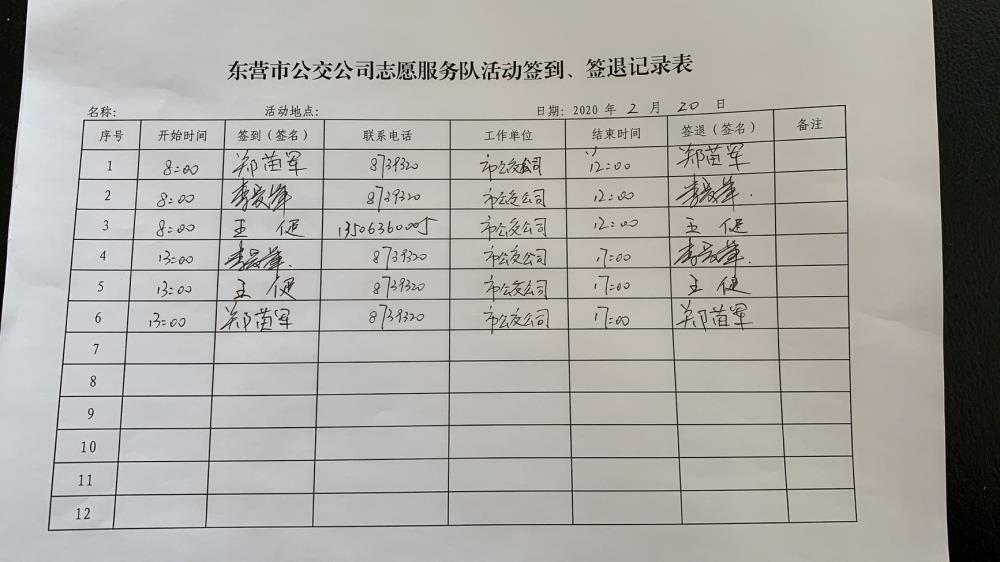 东营市公交公司志愿服务队活动签到、签退记录表
名称: 活动地点: 日期: 2020 年 2 月 20 日
序号 开始时间 签到（签名） 联系电话 工作单位 结束时间 签退（签名） 备注
1 8:00 郑苗军 8739320 市公交公司 12:00 郑苗军
2 8:00 李 8739320 市公交公司 12:00 李
3 8:00 王健 13506360005 市公交公司 12:00 王健
4 13:00 李 8739320 市公交公司 17:00 李
5 13:00 王健 8739320 市公交公司 17:00 王健
6 13:00 郑苗军 8739320 市公交公司 17:00 郑苗军
7
8
9
10
11
12